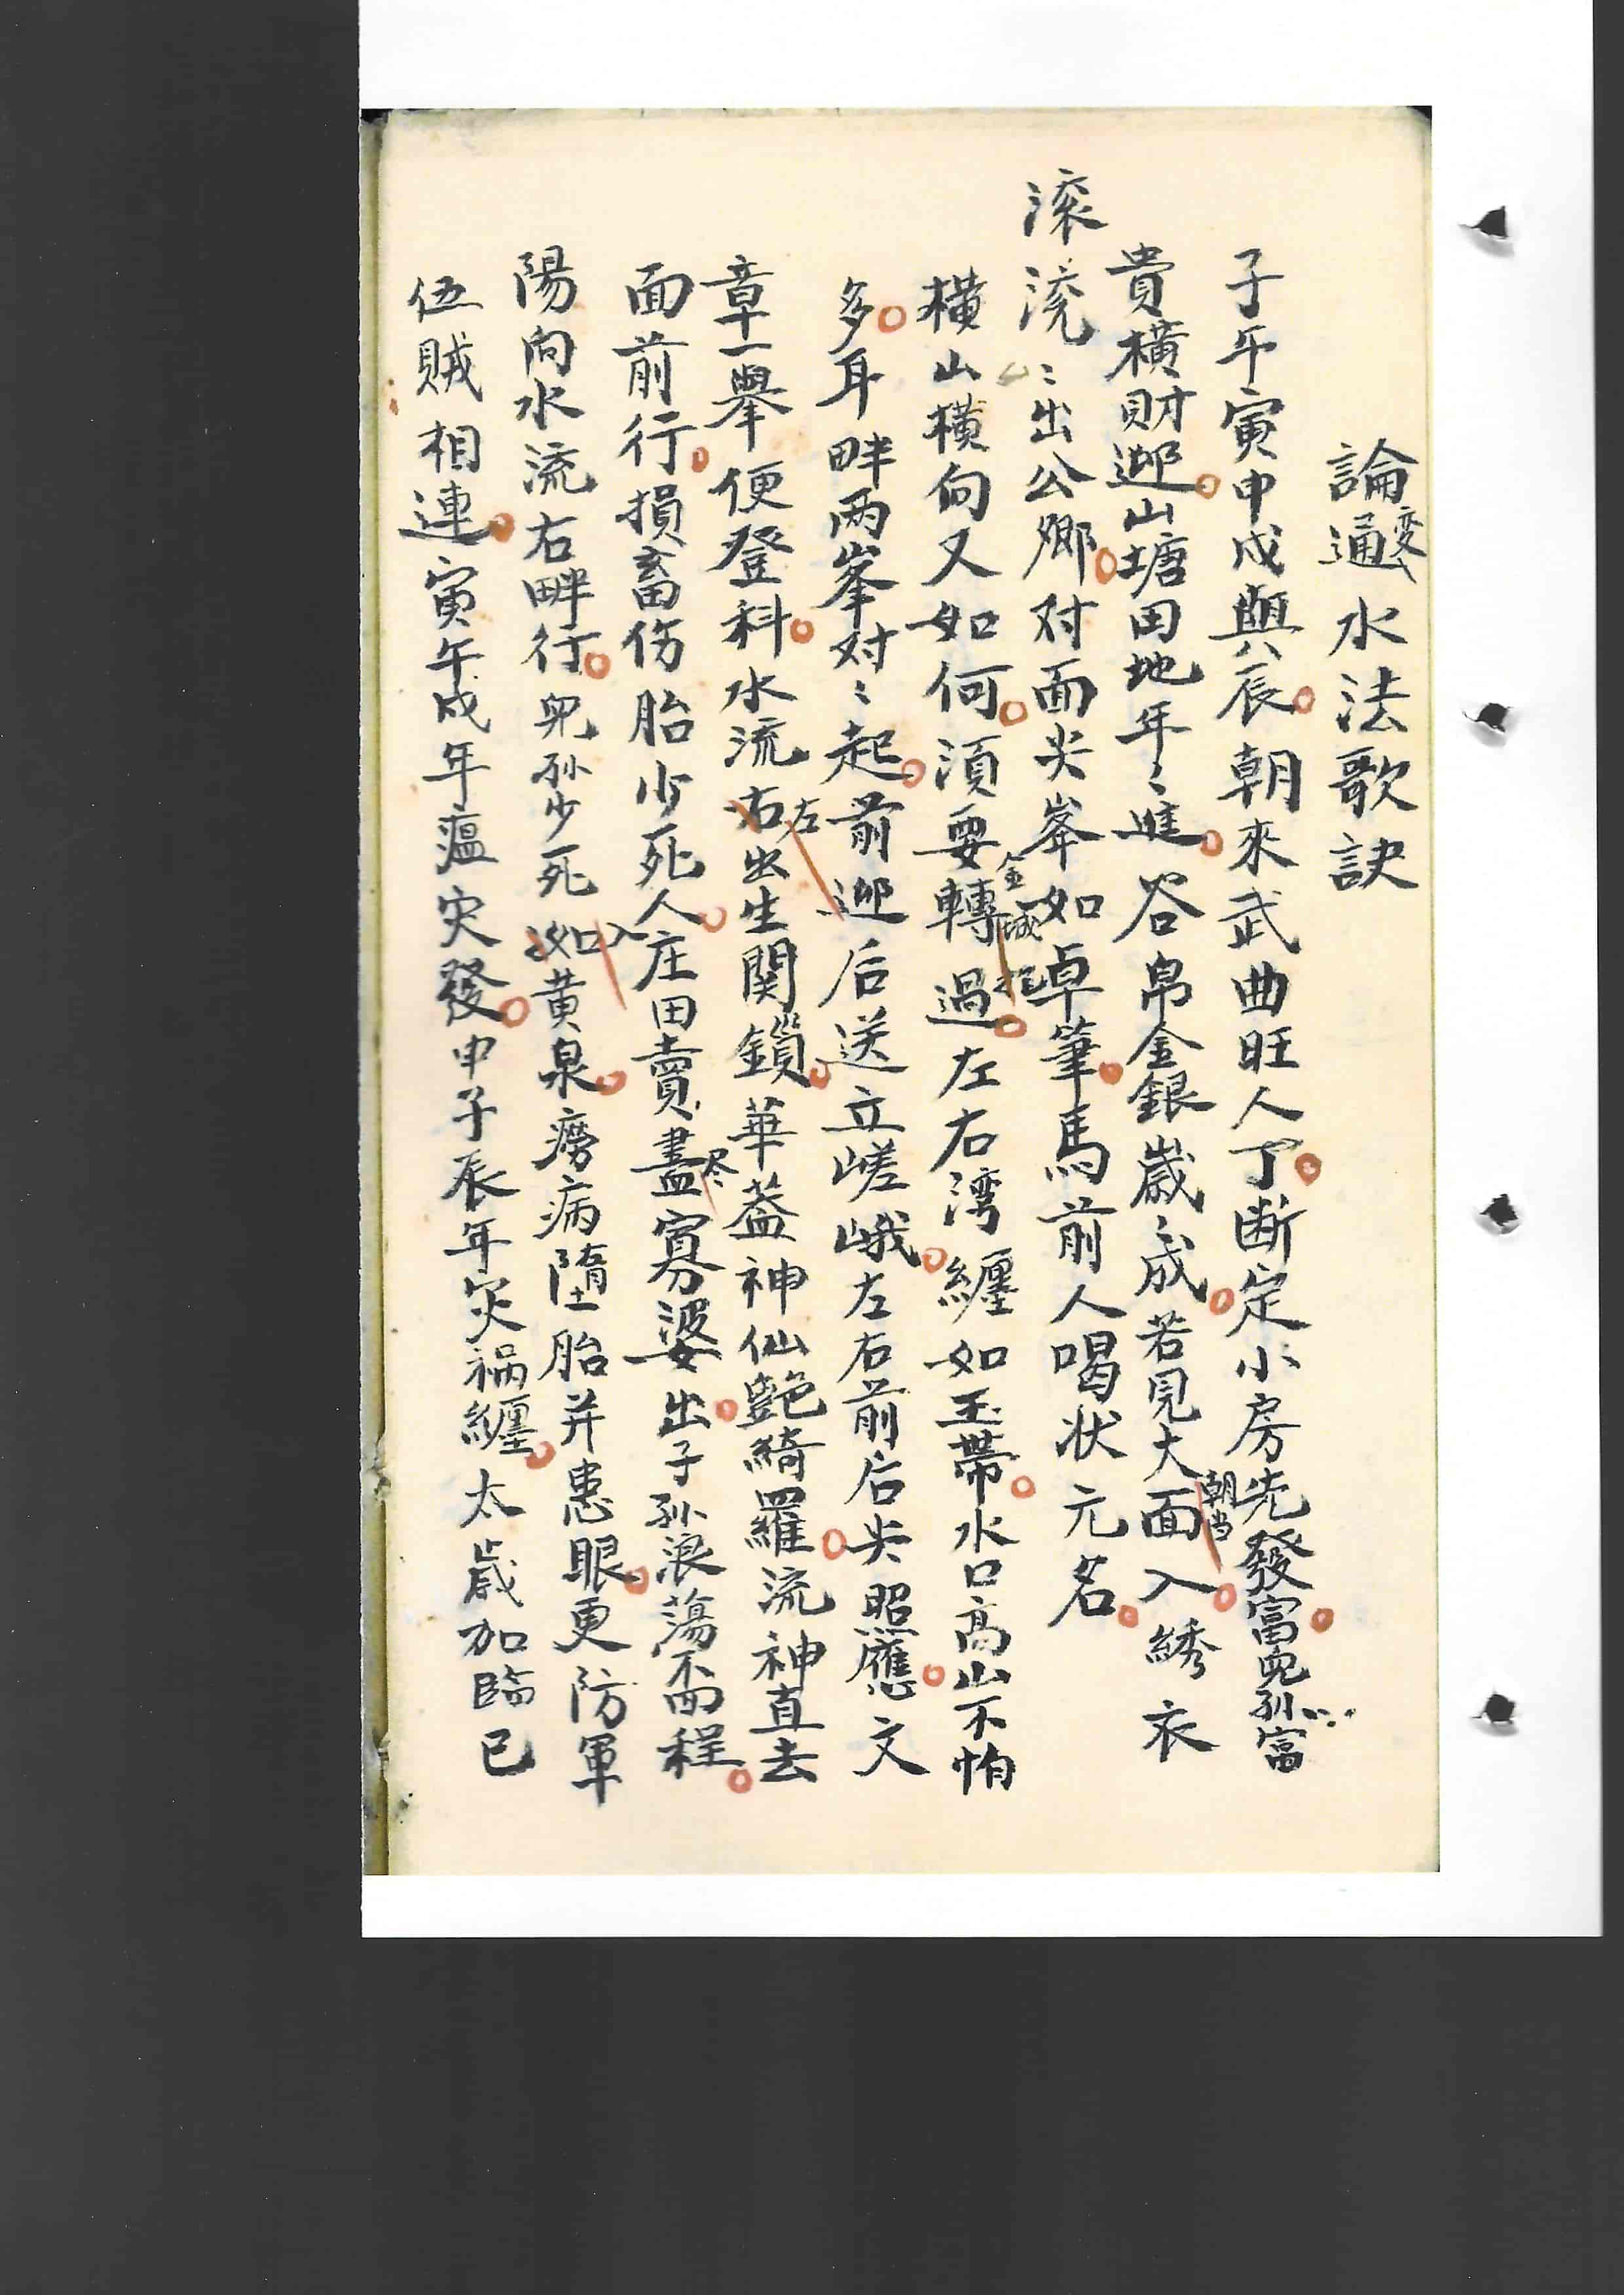 論通变水法歌訣
子午寅申戌與辰朝來武曲旺人丁断定小房先發富兒孫富
貴橫財迎山塘田地年〻進谷帛金銀歲〻成若見大面朝当入綉衣
滚
滚〻出公卿对面尖峯如卓筆馬前人喝状元名
橫山橫向又如何湏要轉金城过過左右湾纏如玉帶水口高山不怕
多耳畔两峯对〻起前迎后送立嵯峨左右前后尖照應文
章一舉便登科水流右左出生関鎖華葢神仙艶綺羅流神直去
面前行損畜伤胎少死人庄田賣盡尽寡婆出子孫浪蕩不回程
陽向水流右畔行兒孫少死如入黄泉癆病墮胎并患眼更防軍
伍賊相連寅午戌年瘟灾發申子辰年灾禍纏太歲加臨已